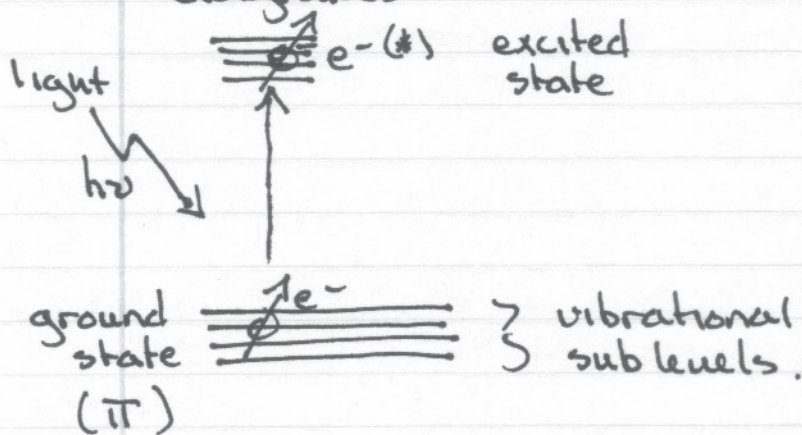 e⁻ (*) excited
state
light
hν
e⁻
ground
state
(π)
vibrational
sub levels.